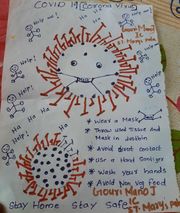 COVID 19 (Corona Virus)
Help me!
Help!
Help!
Help!
Help!
Ha
Ha
Ha
Ha
Ha
Wear a Mask
Throw used Tissue and
Mask in dustbin
Avoid direct contact
Use a Hand Sanitizer
Wash your hands
Avoid Non veg food
Stay Home Stay Safe
St Mary's